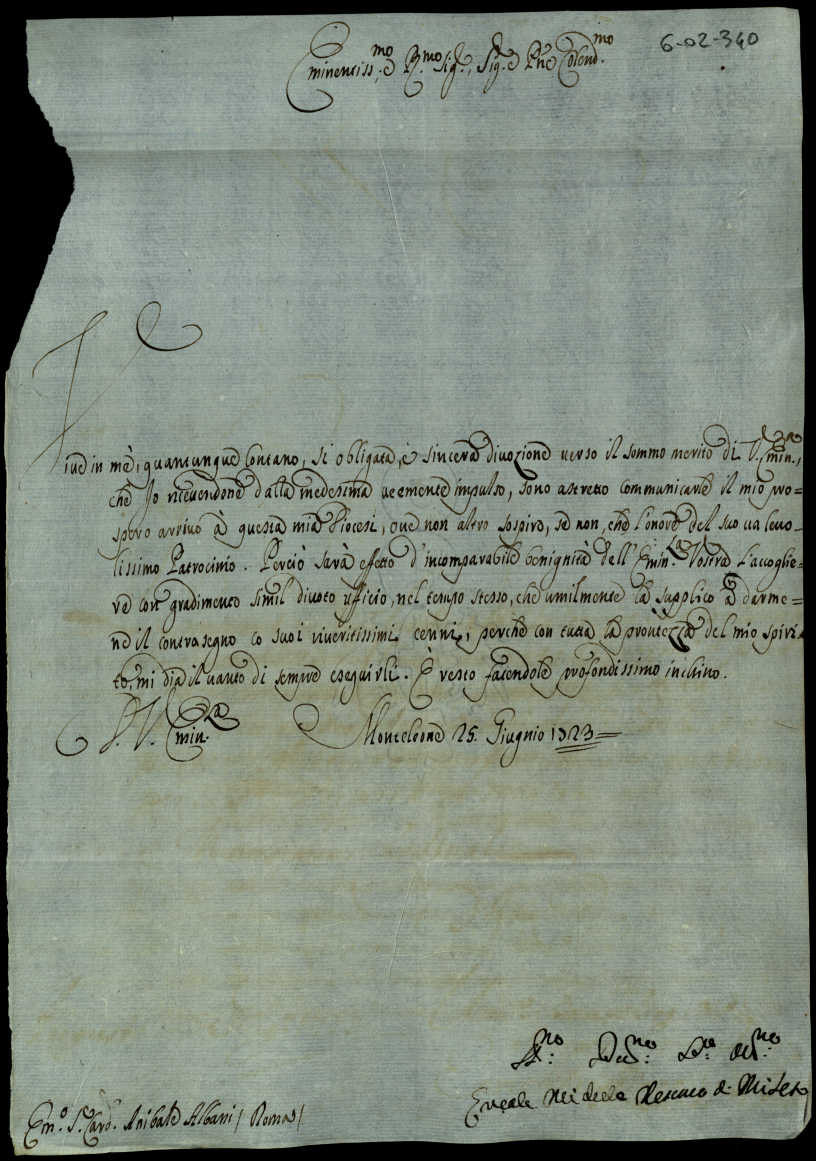 6-02-340
Eminentiss.mo e R.mo Sig.r, Sig.r e Pne Colend.mo
Viue in mè, quantunque lontano, si obligata, e sincera diuozione uerso il sommo merito di V. Em.za,
che Io riceuendone dalla medesima ueemente impulso, sono astretto communicarle il mio pro=
spero arriuo à questa mia Diocesi, oue non altro sospiro, se non, che l'onore del suo ualeuo=
lissimo Patrocinio. Perciò sarà effetto d'incomparabile benignità dell'Emin.za Vostra l'accoglie=
re con gradimento simil diuoto ufficio, nel tempo stesso, che umilmente la supplico à darme=
ne il contrasegno co suoi riueritissimi cenni, perche con tutta la prontezza del mio spiri=
to, mi dia il uanto di sempre eseguirli. E resto facendole profondissimo inchino.
D. V. Emin.za Monteleone 25. Giugno 1723
H.mo Deu.mo Ser.
Ercole Vescouo di Mileto
Em.o S.r Card. Anibale Albani / Roma /